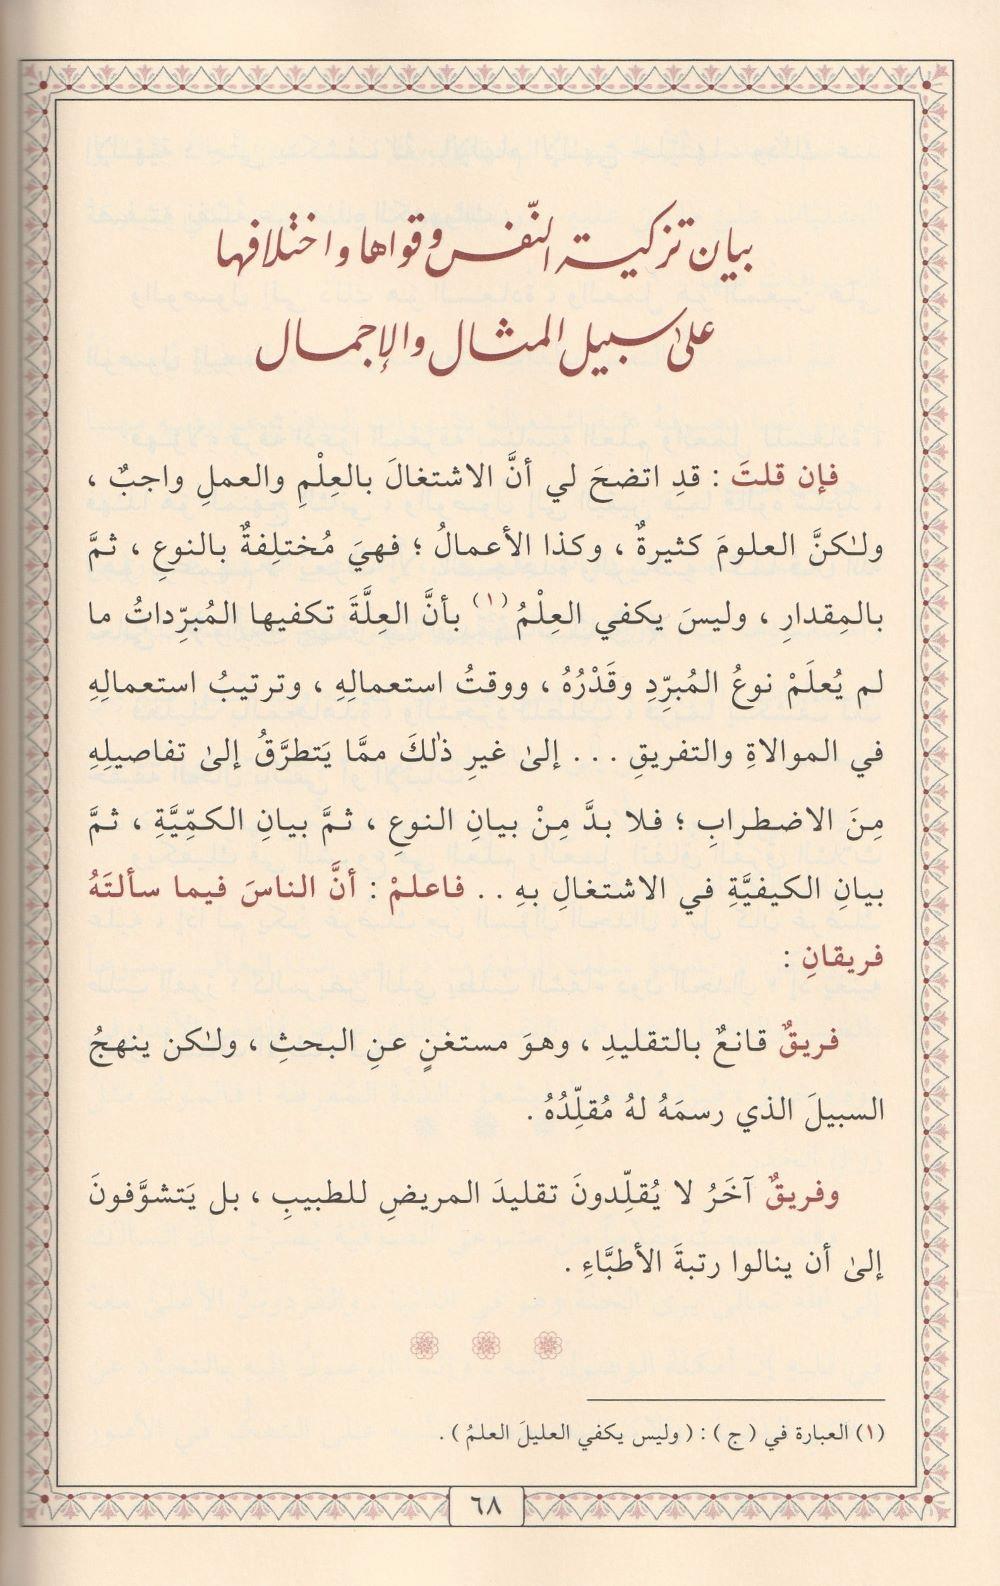 بيان تزكية النّفس وقواها واختلافها
على سبيل المثال والإجمال
فإن قلتَ : قدِ اتضحَ لي أنَّ الاشتغالَ بالعِلْمِ والعملِ واجبٌ ،
ولٰكنَّ العلومَ كثيرةٌ ، وكذا الأعمالُ ؛ فهيَ مُختلِفةٌ بالنوعِ ، ثمَّ
بالمِقدارِ ، وليسَ يكفي العِلْمُ (١) بأنَّ العِلَّةَ تكفيها المُبرِّداتُ ما
لم يُعلَمْ نوعُ المُبرِّدِ وقَدْرُهُ ، ووقتُ استعمالِهِ ، وترتيبُ استعمالِهِ
في الموالاةِ والتفريقِ ... إلىٰ غيرِ ذٰلكَ ممَّا يَتطرَّقُ إلىٰ تفاصيلِهِ
مِنَ الاضطرابِ ؛ فلا بدَّ مِنْ بيانِ النوعِ ، ثمَّ بيانِ الكمِّيَّةِ ، ثمَّ
بيانِ الكيفيَّةِ في الاشتغالِ بهِ .. فاعلمْ : أنَّ الناسَ فيما سألتَهُ
فريقانِ :
فريقٌ قانعٌ بالتقليدِ ، وهوَ مستغنٍ عنِ البحثِ ، ولٰكن ينهجُ
السبيلَ الذي رسمَهُ لهُ مُقلِّدُهُ .
وفريقٌ آخَرُ لا يُقلِّدونَ تقليدَ المريضِ للطبيبِ ، بل يَتشوَّفونَ
إلىٰ أن ينالوا رتبةَ الأطبَّاءِ .
(١) العبارة في ( ج ) : ( وليس يكفي العليلَ العلمُ ) .
٦٨